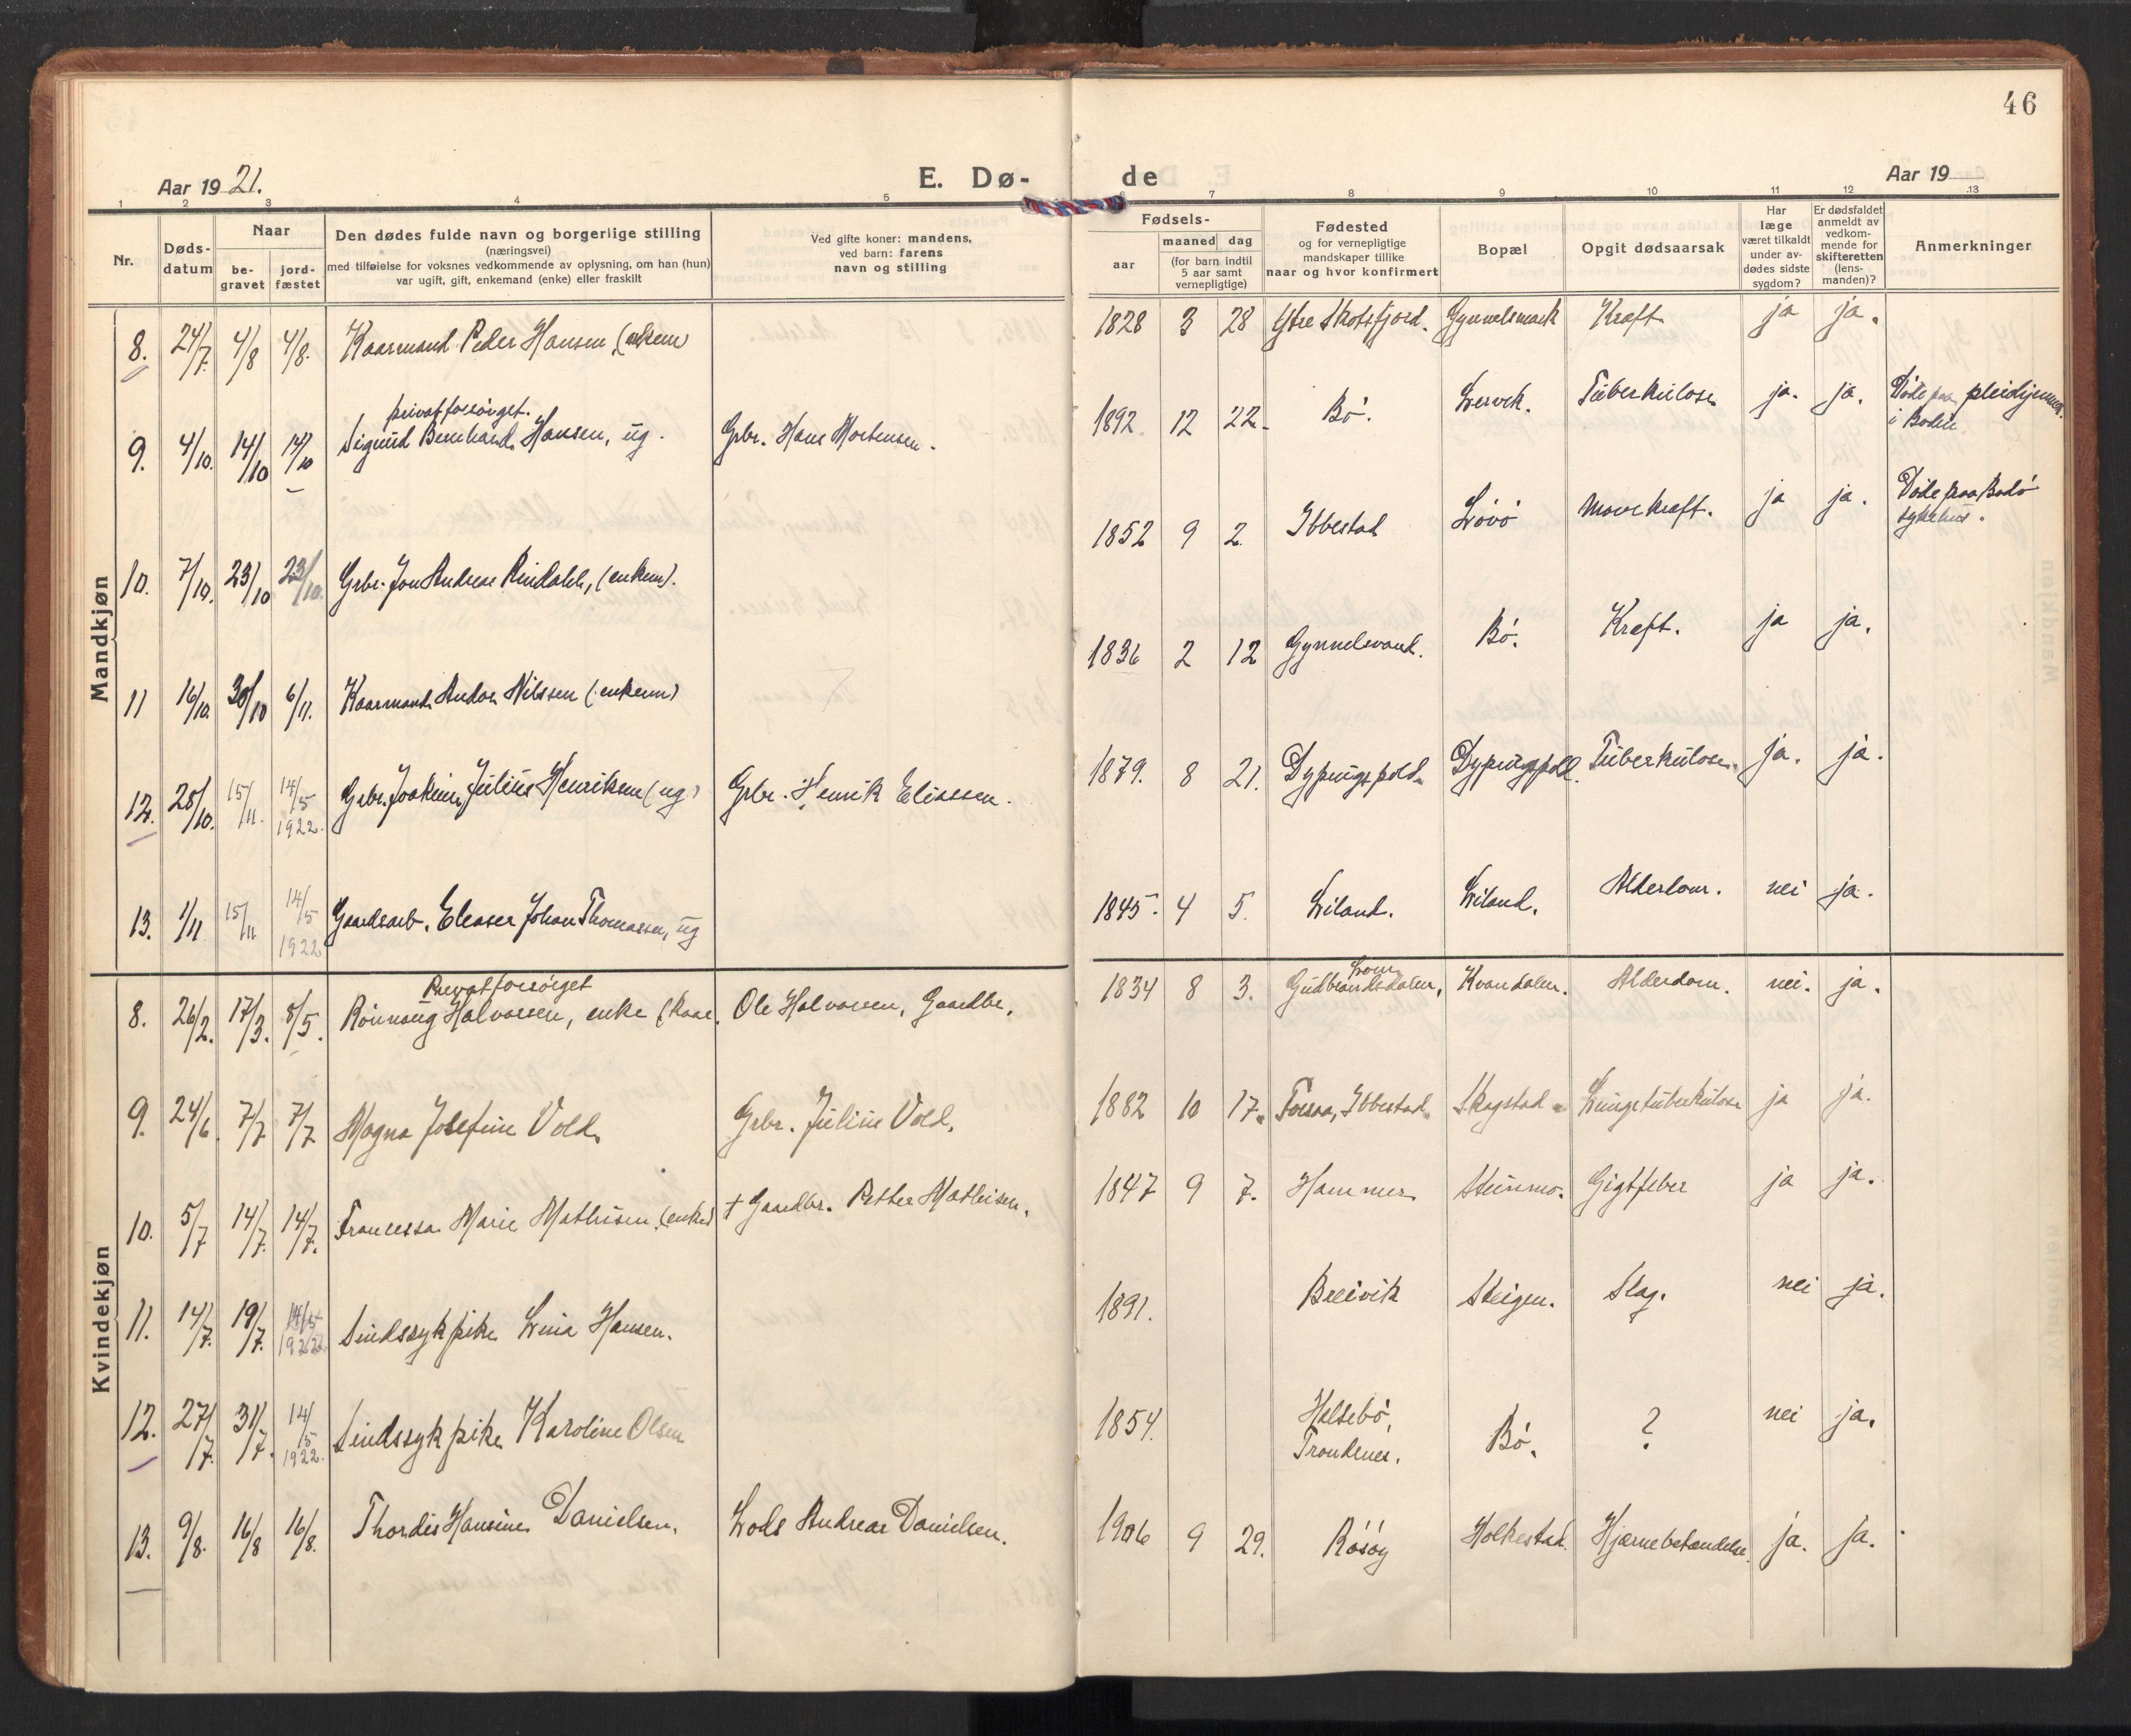 46
Aar 1921.
E. Dø-
de
Aar 19
1 2 3 4 5 6 7 8 9 10 11 12 13
Nr.
Døds-
datum
Naar
be-
gravet
jord-
fæstet
Den dødes fulde navn og borgerlige stilling
(næringsvei)
med tilføielse for voksnes vedkommende av oplysning, om han (hun)
var ugift, gift, enkemand (enke) eller fraskilt
Ved gifte koner: mandens,
ved barn: farens
navn og stilling
Fødsels-
aar
maaned dag
(for barn indtil
5 aar samt
vernepligtige)
Fødested
og for vernepligtige
mandskaper tillike
naar og hvor konfirmert
Bopæl
Opgit dødsaarsak
Har
læge
været tilkaldt
under av-
dødes sidste
sygdom?
Er dødsfaldet
anmeldt av
vedkom-
mende for
skifteretten
(lens-
manden)?
Anmerkninger
Mandkjøn
8. 24/7. 4/8 4/8. Kaarmand Peder Hansen, (enkem) 1828 3 28 Ytre Skotsfjord. Gynnelsmark Kræft ja ja.
privatforsörget.
9. 4/10. 14/10 14/10 Sigurd Bernhard Hansen, ug. Grbr. Hans Mortensen. 1892 12 22. Bö. Lervik. Tuberkulose ja. ja. Döde paa pleiehjemmet
i Bodin
10. 7/10. 23/10 23/10. Grbr. Jon Andreas Rindahl, (enkem). 1852 9 2. Ibbestad Lövö Mavekræft. ja ja. Döde paa Bodö
sykehus.
11 16/10. 30/10 6/11. Kaarmand Andor Nilssen (enkem) 1836 2 12 Gynnelsvand. Bö. Kræft. ja ja.
12. 28/10. 15/11. 14/5 1922. Grbr. Joakim Julius Henriksen (ug) Grbr. Henrik Eliassen. 1879. 8 21. Dypingspold. Dypingspoll. Tuberkulose. ja. ja.
13. 1/11 15/11 14/5 1922 Gaardsarb. Eleaser Johan Thomassen, ug 1845. 4 5. Liland. Liland. Alderdom. nei ja.
Kvindekjøn
Privatforsörget
8. 26/2. 17/3. 8/5. Rönnaug Halvorsen, enke (kaar. Ole Halvorsen, Gaardbr. 1834 8 3. Lom Gudbrandsdalen, Kvandalen. Alderdom. nei. ja.
9. 24/6. 7/7 7/7 Magna Josefine Vold. Grbr. Julius Vold. 1882 10 17. Forsaa, Ibbestad. Skagstad. Lungetuberkulose ja ja.
10. 5/7 14/7. 14/7. Francessa Marie Mathisen (enke) † Gaardbr. Petter Mathisen. 1847 9 7. Hammer Steinmo. Gigtfeber ja ja.
11. 14/7. 19/7. 14/5 1922. Sindssyk pike Lina Hansen. 1891. Breivik Steigen. Slag. nei ja.
12. 27/7. 31/7. 14/5 1922. Sindssyk pike Karoline Olsen 1854. Halsebö,
Trondenes. Bö. ? nei ja.
13. 9/8. 16/8 16/8. Thordis Hansine Danielsen. Lods Andreas Danielsen. 1906 9 29. Rösöy Holkestad. Hjernebetændelse. ja. ja.